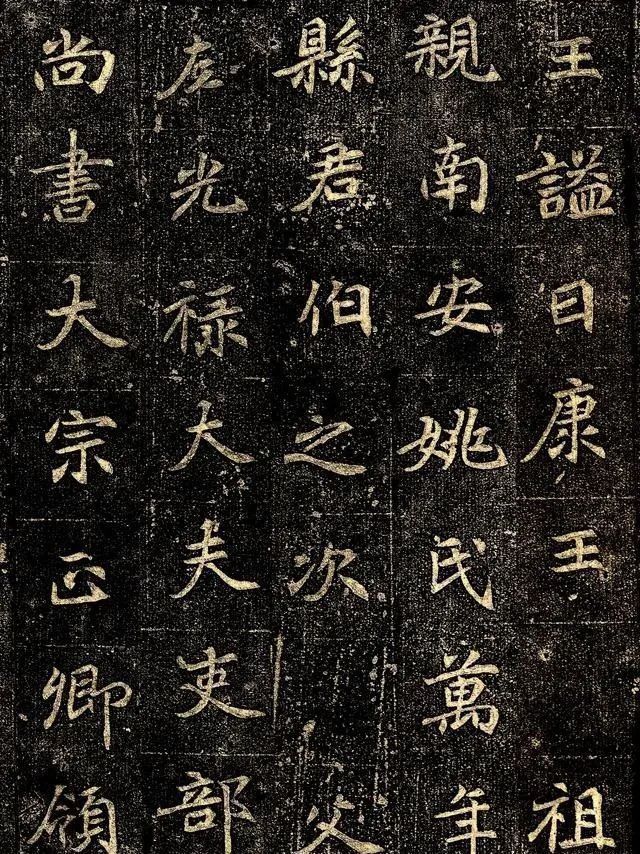 王諡曰康王祖
親南安姚氏萬年
縣君伯之次父
左光祿大夫吏部
尚書大宗正卿領